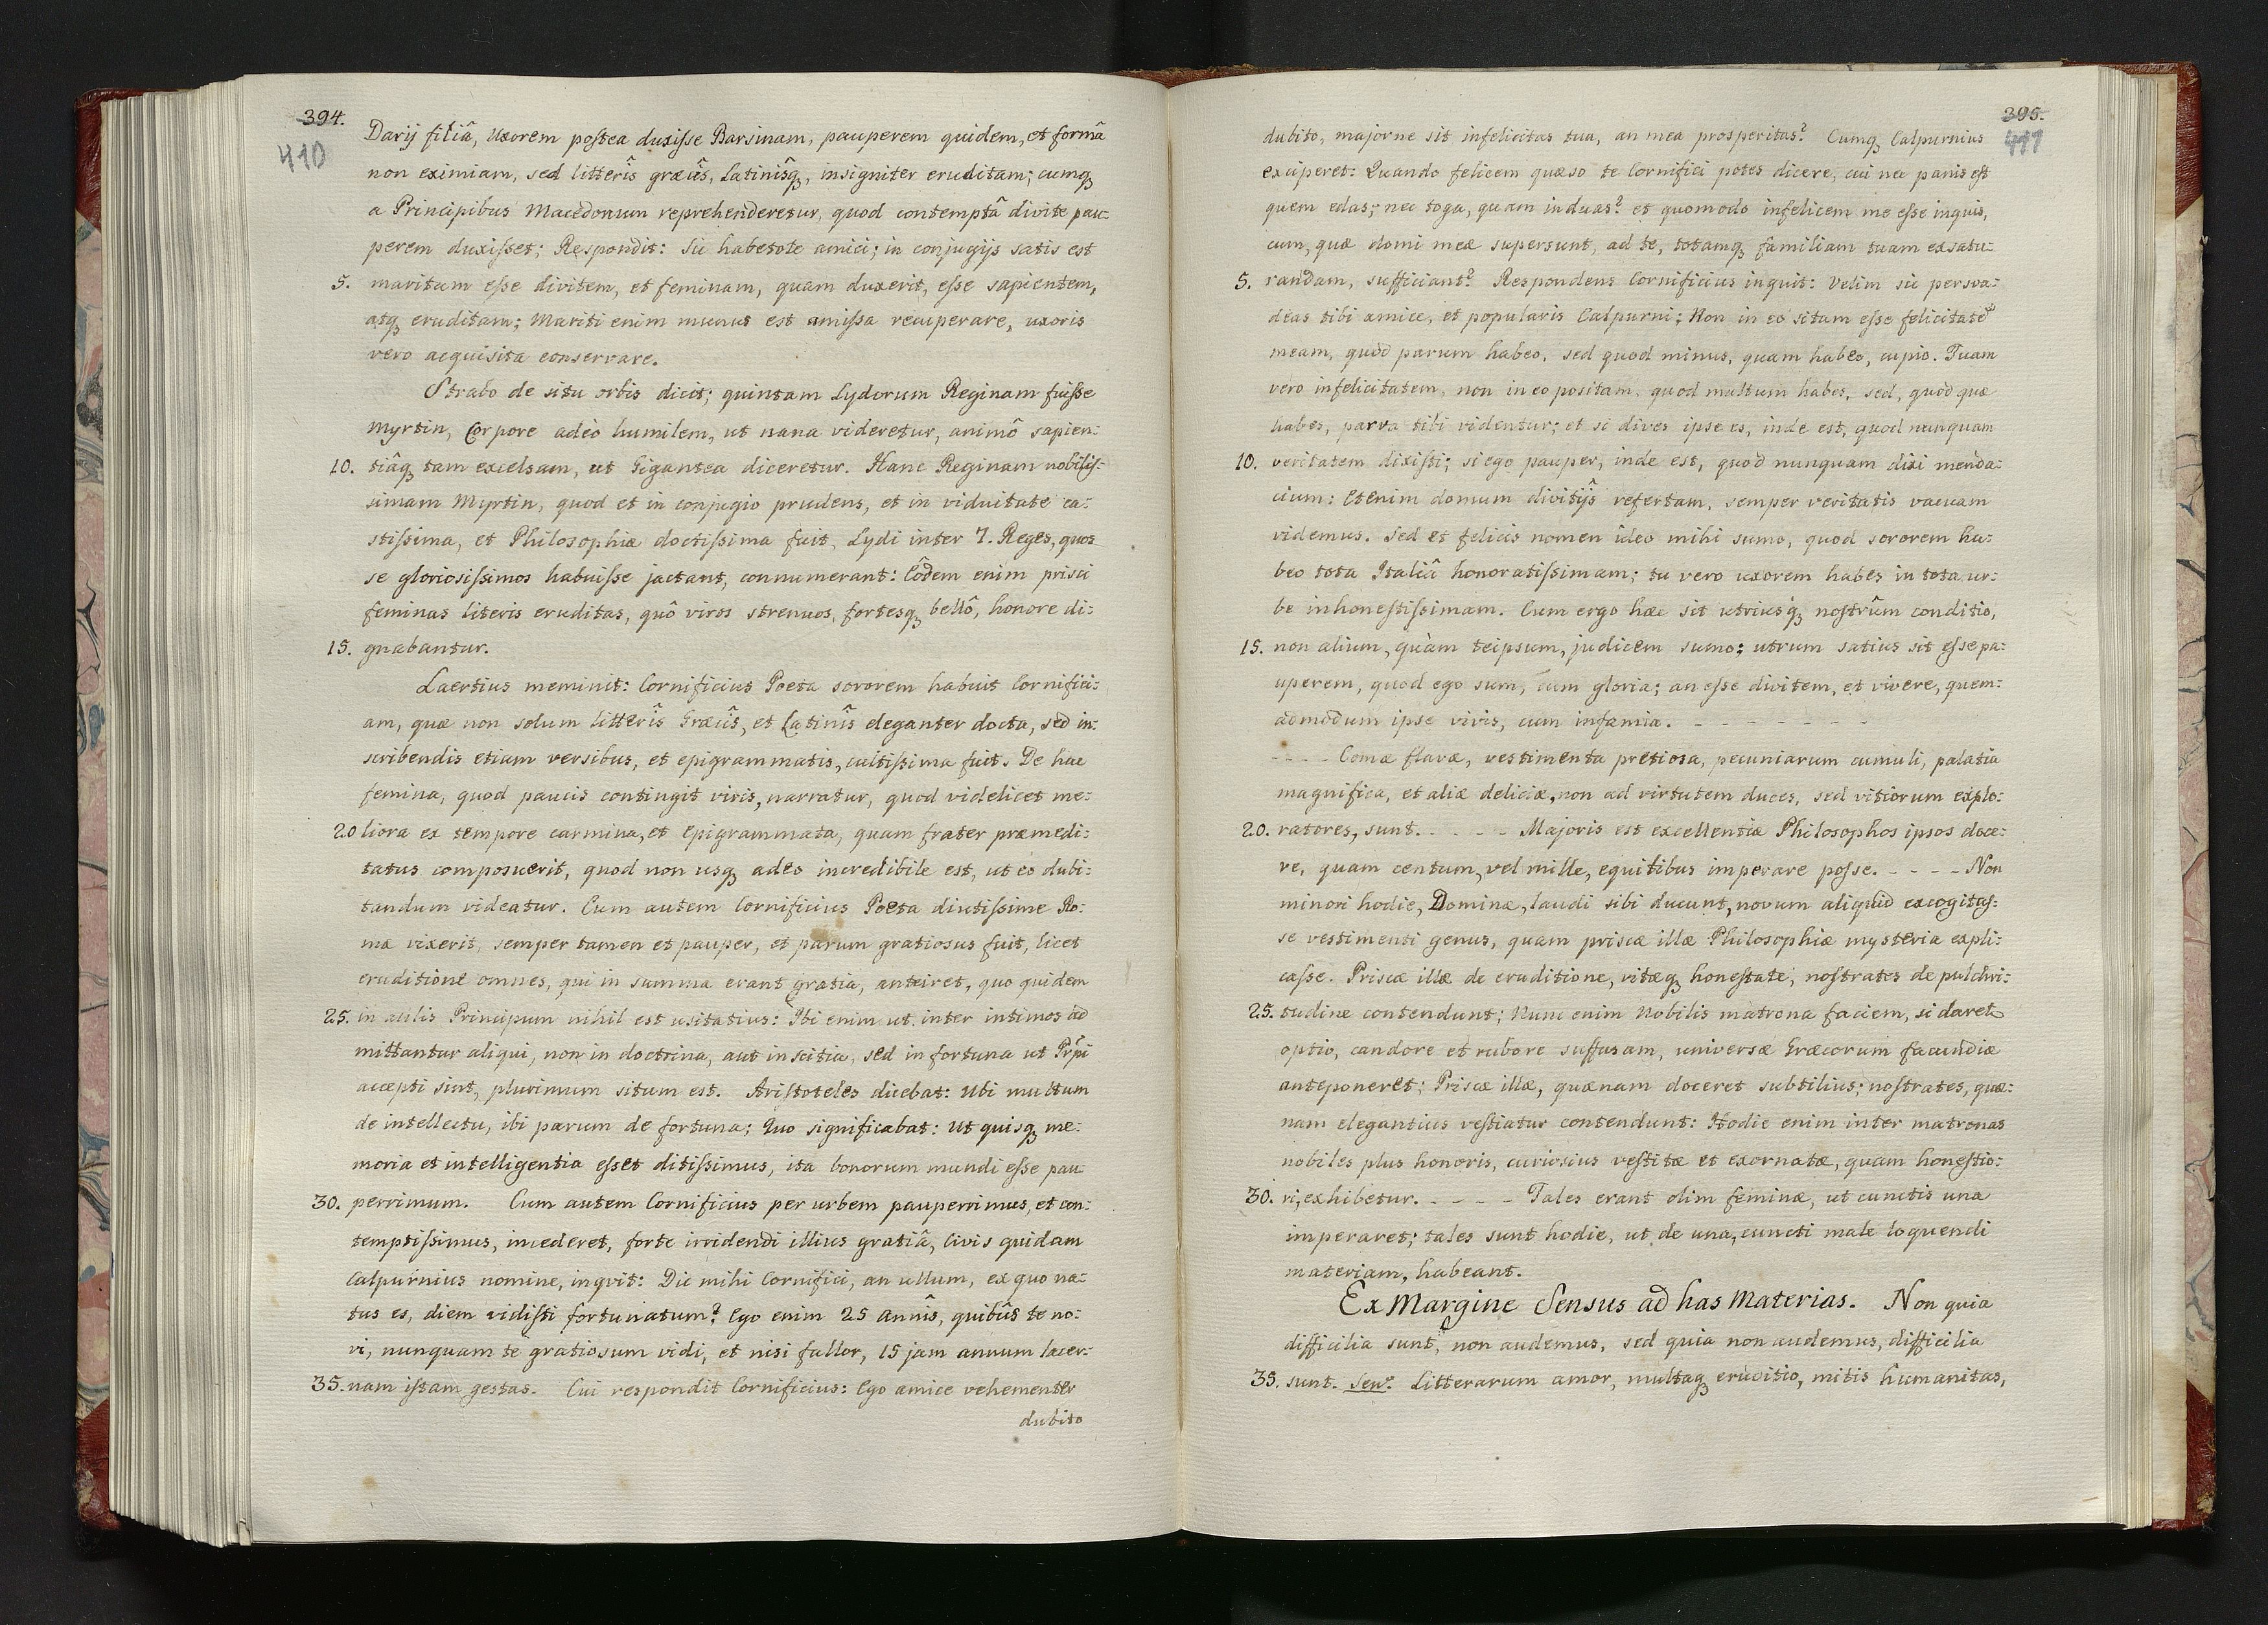 394.
410
Darij filiâ, Uxorem postea duxisse Barsinam, pauperem quidem, et formâ
non eximiam, sed litterîs græcîs, Latinîsq3, insigniter eruditam; cumq3
a Principibus Macedonum reprehenderetur, quod contemptâ divite pau:
perem duxisset; Respondit: Sic habetote amici; in conjugijs satis est
5. maritum esse divitem, et feminam, quam duxerit, esse sapientem,
atq3 eruditam; Mariti enim munus est amissa recuperare, uxoris
vero acquisita conservare.
Strabo de situ orbis dicit; quintam Lydorum Reginam fuisse
Myrtin, Corpore adeò humilem, ut nana videretur, animô sapien:
10. tiâq3 tam excelsam, ut Gigantea diceretur. Hanc Reginam nobilis:
simam Myrtin, quod et in conjugio prudens, et in viduitate ca:
stissima, et Philosophiæ doctissima fuit, Lydi inter 7. Reges, quos
se gloriosissimos habuisse jactant, connumerant: Eôdem enim prisci
feminas literis eruditas, quô viros strenuos, fortesq3 bellô, honore di:
15. gnabantur.
Laertius meminit: Cornificius Poeta sororem habuit Cornifici:
am, quæ non solum litterîs Græcîs, et Latinîs eleganter docta, sed in:
scribendis etiam versibus, et epigrammatis, cultissima fuit. De hac
femina, quod paucis contingit viris, narratur, quod videlicet me:
20 liora ex tempore carmina, et epigrammata, quam frater præmedi:
tatus composuerit, quod non usq3 adeo incredibile est, ut eo dubi:
tandum videatur. Cum autem Cornificius Poeta diutissime Ro:
mæ vixerit, semper tamen et pauper, et parum gratiosus fuit, licet
eruditione omnes, qui in summa erant gratia, anteiret, quo quidem
25. in aulis Principum nihil est usitatius: Ibi enim ut inter intimos ad
mittantur aliqui, non in doctrina, aut inscitia, sed in fortuna ut Prpi
accepti sint, plurimum situm est. Aristoteles dicebat: Ubi multum
de intellectu, ibi parum de fortuna; Quo significabat: Ut quisq3 me:
moria et intelligentia esset ditissimus, ita bonorum mundi esse pau:
30. perrimum. Cum autem Cornificius per urbem pauperrimus, et con:
temptissimus, incederet, forte irridendi illius gratiâ, Civis quidam
Calpurnius nomine, inqvit: Dic mihi Cornifici, an ullum, ex quo na:
tus es, diem vidisti fortunatum? Ego enim 25 annîs, quibûs te no:
vi, nunquam te gratiosum vidi, et nisi fallor, 15 jam annum lacer:
35. nam istam gestas. Cui respondit Cornificius: Ego amice vehementer
dubito
395.
411
dubito, majorne sit infelicitas tua, an mea prosperitas? Cumq3 Calpurnius
exciperet: Quando felicem quæso te Cornifici potes dicere, cui nec panis est
quem edas; nec toga, quam induas? et quomodo infelicem me esse inquis,
cum, quæ domi meæ supersunt, ad te, totamq3 familiam tuam exsatu:
5. randam, sufficiant? Respondens Cornificius inquit: Velim sic persva:
deas tibi amice, et popularis Calpurni; Non in eo sitam esse felicitatẽ
meam, quòd parum habeo, sed quod minus, quam habeo, cupio. Tuam
vero infelicitatem, non in eo positam, quod multum habes, sed, quòd quæ
habes, parva tibi videntur; et si dives ipse es, inde est, quod nunquam
10. veritatem dixisti; si ego pauper, inde est, quòd nunquam dixi menda:
cium: Etenim domum divitijs refertam, semper veritatis vacuam
videmus. Sed et felicis nomen ideo mihi sumo, quod sororem ha:
beo tota Italiâ honoratissimam; tu vero uxorem habes in tota ur:
be inhonestissimam. Cum ergo hæc sit utriusq3 nostrûm conditio,
15. non alium, quàm teipsum, judicem sumo; utrum satius sit esse pa:
uperem, quod ego sum, cum gloria; an esse divitem, et vivere, quem:
admodum ipse vivis, cum infamia. - - - - - - -
- - - - Comæ flavæ, vestimenta pretiosa, pecuniarum cumuli, palatia
magnifica, et aliæ deliciæ, non ad virtutem duces, sed vitiorum explo:
20. ratores, sunt. - - - - Majoris est excellentiæ Philosophos ipsos doce:
re, quam centum, vel mille, equitibus imperare posse. - - - - Non
minori hodie, Dominæ, laudi sibi ducunt, novum aliquid excogitas:
se vestimenti genus, quam priscæ illæ Philosophiæ mysteria expli:
casse. Priscæ illæ de eruditione, vitæq3 honestate, nostrates de pulchri:
25. tudine contendunt; Nunc enim Nobilis matrona faciem, si daret
optio, candore et rubore suffusam, universæ Græcorum facundiæ
anteponeret; Priscæ illæ, quænam doceret subtilius; nostrates, quæ:
nam elegantius vestiatur contendunt: Hodie enim inter matronas
nobiles plus honoris, curiosius vestitæ et exornatæ, quam honestio:
30. ri, exhibetur. - - - - Tales erant olim feminæ, ut cunctis una
imperaret; tales sunt hodie, ut de una, cuncti male loquendi
materiam, habeant.
Ex Margine Sensus ad has Materias. Non quia
difficilia sunt, non audemus, sed quia non audemus, difficilia
35. sunt. Sen: Litterarum amor, multaq3 eruditio, mitis humanitas,